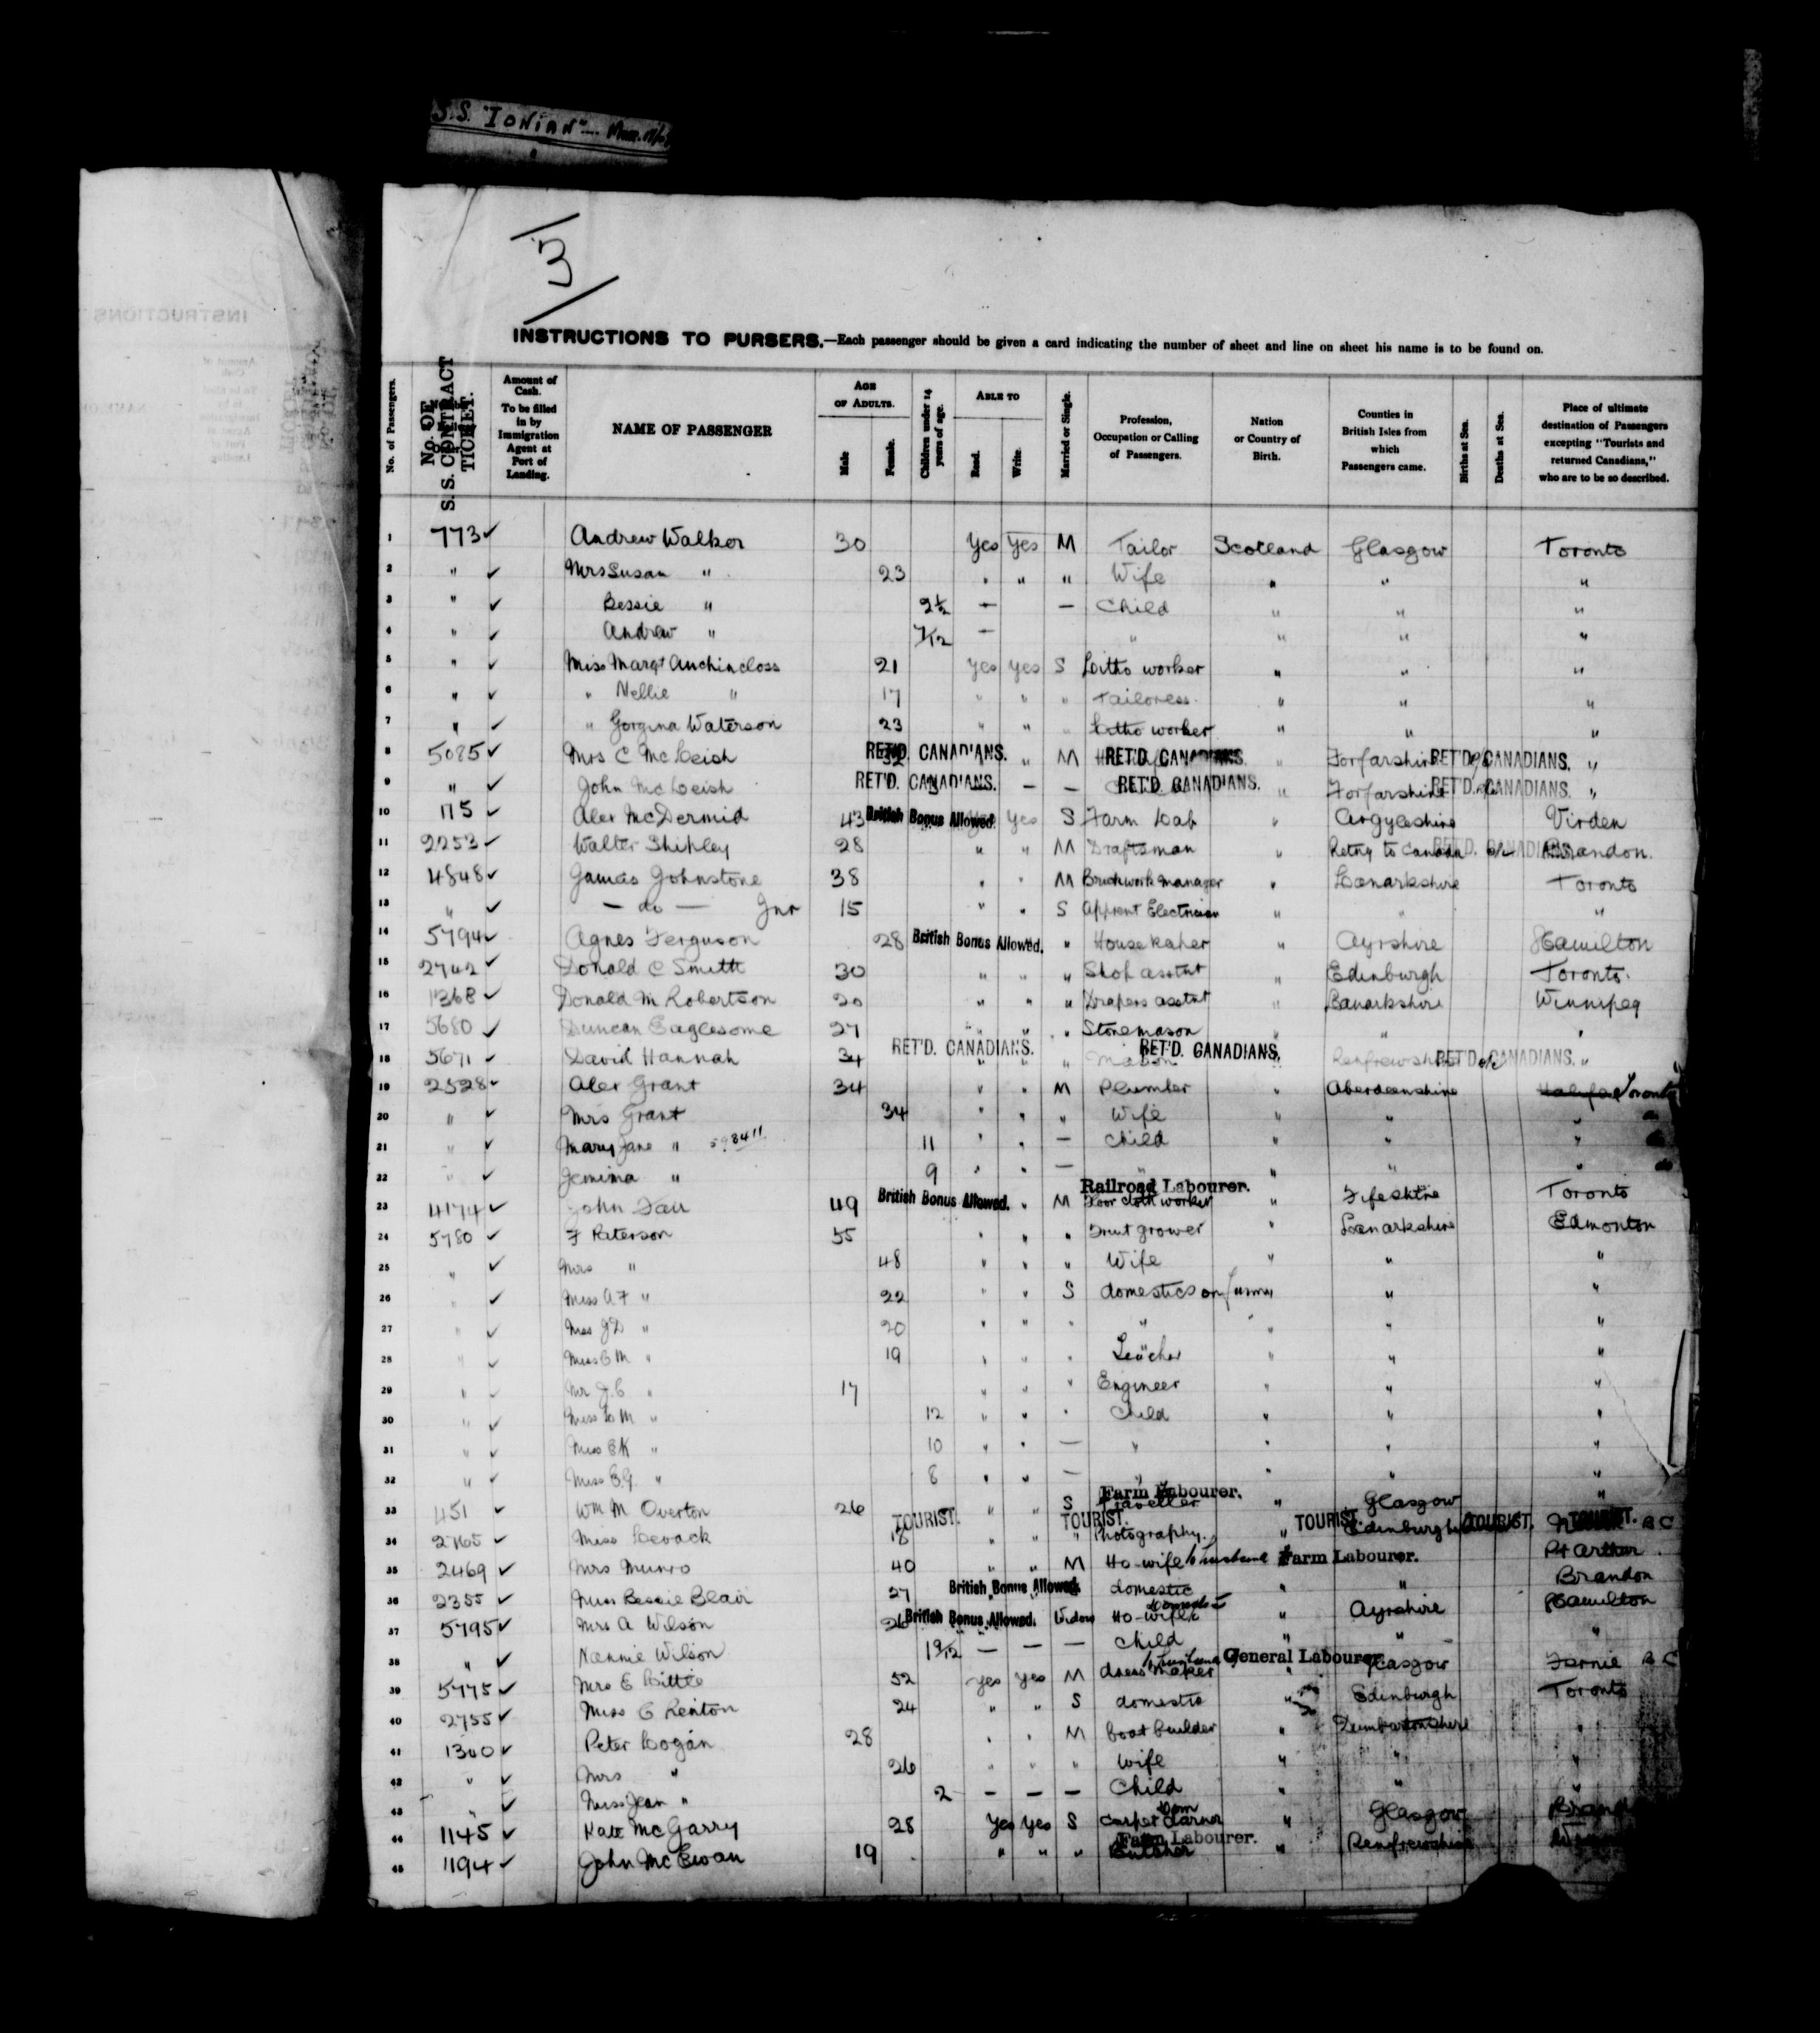 S.S. "IONIAN"
3
INSTRUCTIONS TO PURSERS.—Each passenger should be given a card indicating the number of sheet and line on sheet his name is to be found on.
No. of Passengers. No. OF S. S. CONTRACT TICKET. Amount of Cash. To be filled in by Immigration Agent at Port of Landing. NAME OF PASSENGER AGE OF ADULTS. Male Female. Children under 14 years of age. ABLE TO Read. Write. Married or Single. Profession, Occupation or Calling of Passengers. Nation or Country of Birth. Counties in British Isles from which Passengers came. Births at Sea. Deaths at Sea. Place of ultimate destination of Passengers excepting "Tourists and returned Canadians," who are to be so described.
1 773 ✓ Andrew Walker 30 Yes Yes M Tailor Scotland Glasgow Toronto
2 " ✓ Mrs Susan " 23 " " " Wife " " "
3 " ✓ Bessie " 2½ — — Child " " "
4 " ✓ Andrew " 7/12 — " " " "
5 " ✓ Miss Margt Auchincloss 21 Yes Yes S Litho worker " " "
6 " ✓ " Nellie " 17 " " " Tailoress " " "
7 " ✓ " Gorgina Waterson 23 " " " Litho worker " " "
8 5085 ✓ Mrs C McLeish RET'D. CANADIANS. " M RET'D. CANADIANS. " Forfarshire RET'D. CANADIANS. "
9 " ✓ John McLeish RET'D. CANADIANS. — — RET'D. CANADIANS. " Forfarshire RET'D. CANADIANS. "
10 115 ✓ Alex McDermid 43 British Bonus Allowed. Yes S Farm Lab " Argyleshire Virden
11 2253 ✓ Walter Shipley 28 " " M Draftsman " Retng to Canada RET'D. CANADIANS. Brandon
12 4848 ✓ James Johnstone 38 " " M Brickwork manager " Lanarkshire Toronto
13 " ✓ — do — Jnr 15 " " S Apprent Electrician " " "
14 5794 ✓ Agnes Ferguson 28 British Bonus Allowed. " Housekeper " Ayrshire Hamilton
15 2742 ✓ Donald C Smith 30 " " " Shop asstnt Edinburgh Toronto
16 1368 ✓ Donald M Robertson 20 " " " Drapers asstnt " Lanarkshire Winnipeg
17 5680 ✓ Duncan Eaglesome 27 " " " Stonemason " " "
18 5671 ✓ David Hannah 34 RET'D. CANADIANS. " " " Mason RET'D. CANADIANS. Renfrewshire RET'D. CANADIANS. "
19 2528 ✓ Alex Grant 34 " " M Plumber " Aberdeenshire Halifax Toronto
20 " ✓ Mrs Grant 34 " " " Wife " " "
21 " ✓ Mary Jane " 11 " " — Child " " "
22 " ✓ Jemima " 9 " " — " " " " do
23 4174 ✓ John 49 British Bonus Allowed. " M Railroad Labourer. Floor cloth worker " Fifeshire Toronto
24 5780 ✓ F Paterson 55 " " " Fruit grower " Lanarkshire Edmonton
25 " ✓ Mrs " 48 " " " Wife " " "
26 " ✓ Miss A F " 22 " " S domestics on farms " "
27 " ✓ Miss J D " 20 " " " " " " "
28 " ✓ Miss C M " 19 " " " Teacher " " "
29 " ✓ Mr J.C " 17 " " " Engineer " " "
30 " ✓ Miss L M " 12 " " " Child " " "
31 " ✓ Miss E K " 10 " " — " " " "
32 " ✓ Miss E.G. " 8 " " — " " " "
33 451 ✓ Wm M Overton 26 " " S Farm Labourer. Traveller " Glasgow "
34 2765 ✓ Miss Levack 18 TOURIST. " " TOURIST. " Photography " TOURIST. Edinburgh TOURIST. TOURIST. B C
35 2469 ✓ Mrs Munro 40 " " M Ho-wife to husband Farm Labourer. Pt Arthur
36 2355 ✓ Miss Bessie Blair 27 British Bonus Allowed. domestic " " Brandon
37 5795 ✓ Mrs A Wilson 26 British Bonus Allowed. Widow Ho-wife domestic " Ayrshire Hamilton
38 " ✓ Nannie Wilson 1 9/12 — — — Child " " "
39 5775 ✓ Mrs E Little 52 Yes Yes M dress maker to husband General Labourer. " Glasgow Fernie B C
40 2755 ✓ Miss C Renton 24 " " S domestic " Edinburgh Toronto
41 1300 ✓ Peter Logan 28 " " M boat builder " Dumbartonshire "
42 " ✓ Mrs " 26 " " " Wife " " "
43 " ✓ Miss Jean " 2 — — — Child " " "
44 1145 ✓ Kate McGarry 28 Yes Yes S Carpet darner Dom " Glasgow
45 1194 ✓ John McEwan 19 " " " Farm Labourer. Butcher " Renfrewshire